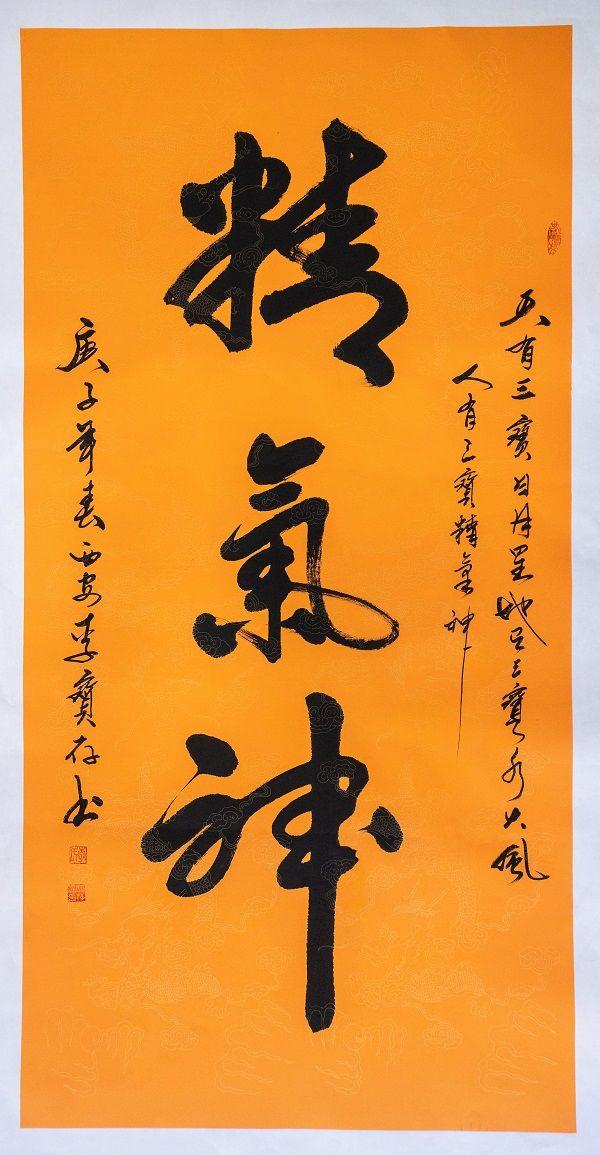 天有三寶日月星地有三寶水火風
人有三寶精氣神
精氣神
庚子年春西安李寶存书